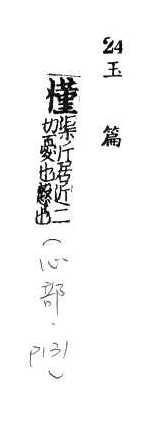 24
玉篇
慬
渠斤居近二
切憂也慤也
(心部.P131)